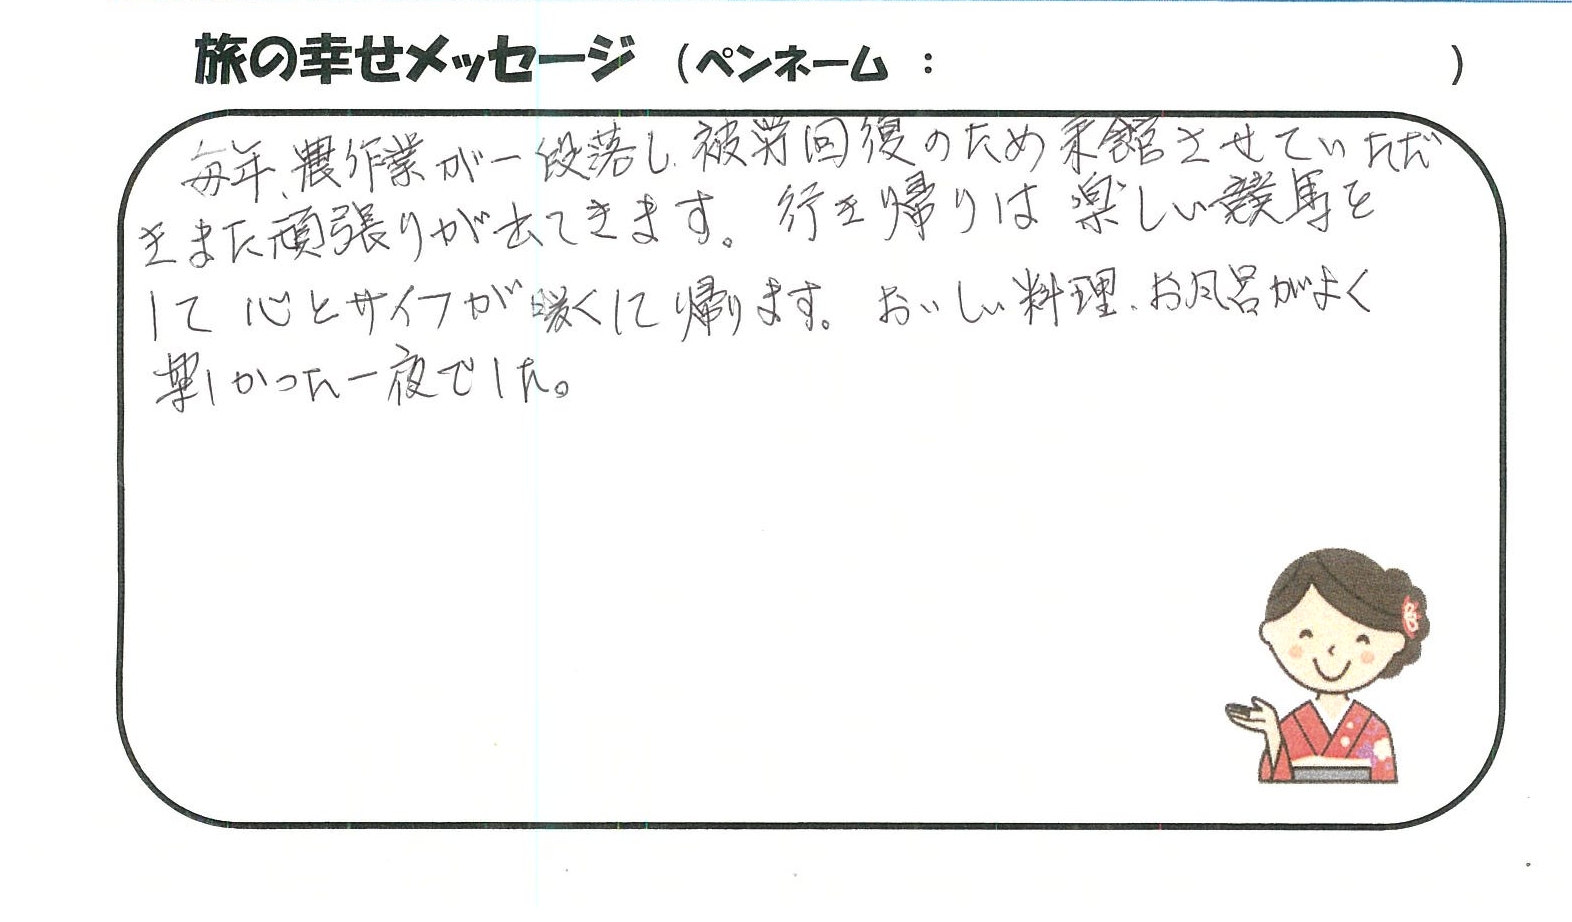 旅の幸せメッセージ (ペンネーム : )
毎年、農作業が一段落し、被労回復のため来館させていただ
きまた頑張りが出てきます。行き帰りは楽しい競馬を
して心とサイフが暖くして帰ります。おいしい料理、お風呂がよく
楽しかった一夜でした。